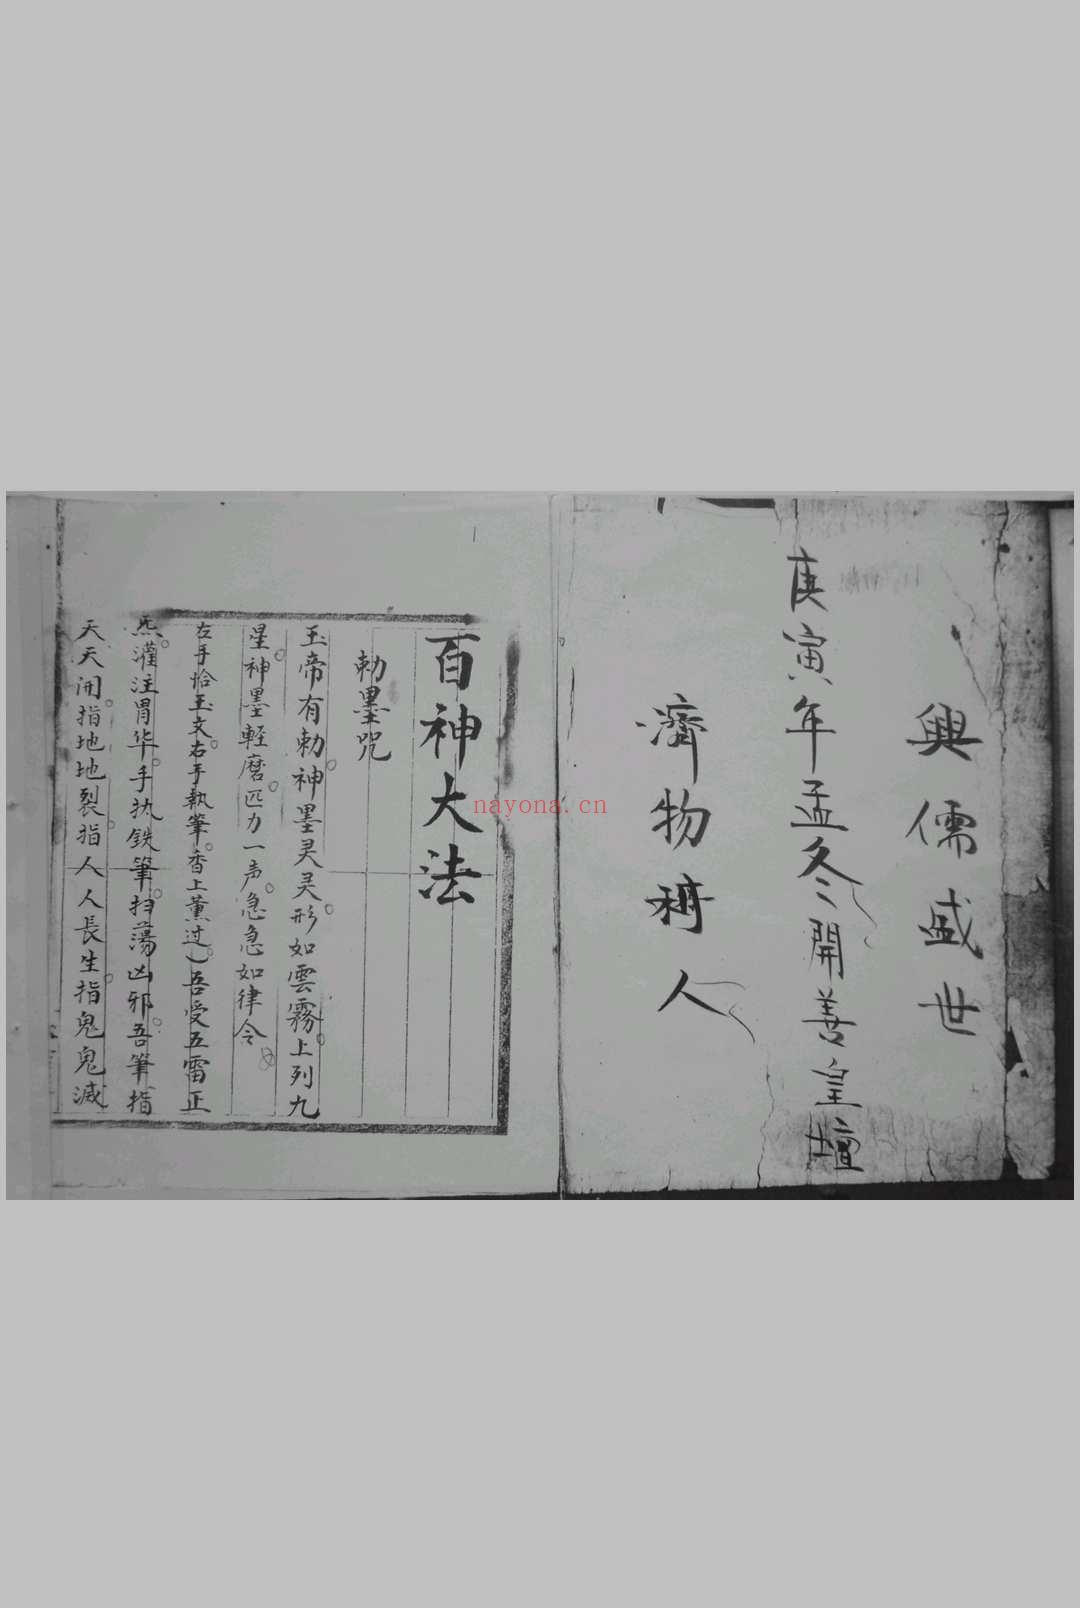 興儒盛世
庚寅年孟冬開善皇壇
濟物稱人
百神大法
勅墨咒
玉帝有勅。神墨灵灵。形如雲霧。上列九
星。神墨輕磨。匹力一声。急急如律令
左手恰玉文。右手執筆。香上薰过）吾受五雷正
炁。灌注胃华。手执鉄筆。扫蕩凶邪。吾筆指
天天開。指地地裂。指人人長生。指鬼鬼滅
nayona.cn